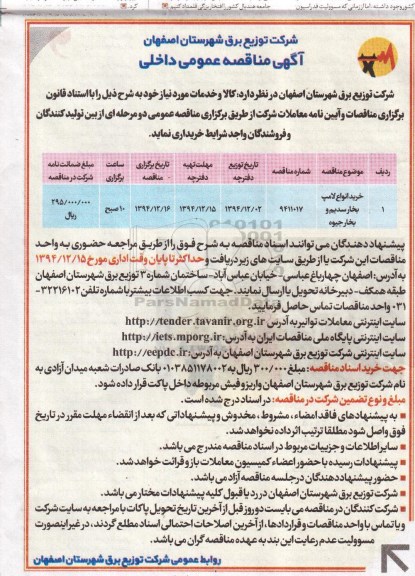 کشور وجود داشته، اما از زمانی که مسوولیت فدراسیون
جامعه هندبال کشور را افتخار بزرگی قلمداد کنیم.
کرد.
شرکت توزیع برق شهرستان اصفهان
آگهی مناقصه عمومی داخلی
شرکت توزیع برق شهرستان اصفهان در نظر دارد، کالا و خدمات مورد نیاز خود به شرح ذیل را با استناد قانون
برگزاری مناقصات و آیین نامه معاملات شرکت از طریق برگزاری مناقصه عمومی دو مرحله ای از بین تولیدکنندگان
و فروشندگان واجد شرایط خریداری نماید.
ردیف موضوع مناقصه شماره مناقصه تاریخ توزیع دفترچه مهلت تهیه دفترچه تاریخ برگزاری مناقصه ساعت برگزاری مبلغ ضمانت نامه شرکت در مناقصه
۱ خرید انواع لامپ بخار سدیم و بخار جیوه ۹۴۱۱۰۱۷ ۱۳۹۴/۱۲/۰۲ ۱۳۹۴/۱۲/۱۵ ۱۳۹۴/۱۲/۱۶ ۱۰ صبح ۲۹۵/۰۰۰/۰۰۰ ریال
پیشنهاد دهندگان می توانند اسناد مناقصه به شرح فوق را از طریق مراجعه حضوری به واحد
مناقصات این شرکت یا از طریق سایت های زیر دریافت و حداکثر تا پایان وقت اداری مورخ ۱۳۹۴/۱۲/۱۵
به آدرس: اصفهان چهارباغ عباسی - خیابان عباس آباد - ساختمان شماره ۳ توزیع برق اصفهان
طبقه همکف - دبیرخانه تحویل یا ارسال نمایند. جهت کسب اطلاعات بیشتر با شماره تلفن ۳۲۲۱۶۱۰۲-
۰۳۱ واحد مناقصات تماس حاصل فرمایید.
سایت اینترنتی معاملات توانیر به آدرس http://tender.tavanir.org.ir
سایت اینترنتی پایگاه ملی مناقصات ایران به آدرس: http://iets.mporg.ir
سایت اینترنتی شرکت توزیع برق شهرستان اصفهان به آدرس: http://eepdc.ir
جهت خرید اسناد مناقصه: مبلغ ۳۰۰/۰۰۰ ریال به ۰۱۰۳۸۵۱۱۷۸۰۰۲ بانک صادرات شعبه میدان آزادی به
نام شرکت توزیع برق شهرستان اصفهان واریز و فیش مربوطه داخل پاکت قرار داده شود.
مبلغ و نوع تضمین شرکت در مناقصه: در اسناد درج شده است.
- به پیشنهادهای فاقد امضاء، مشروط، مخدوش و پیشنهاداتی که بعد از انقضاء مهلت مقرر در تاریخ
فوق واصل شود مطلقا ترتیب اثر داده نخواهد شد.
- سایر اطلاعات و جزییات مربوط در اسناد مناقصه مندرج می باشد.
- پیشنهادات رسیده با حضور اعضاء کمیسیون معاملات باز و قرائت خواهد شد.
- حضور پیشنهاد دهندگان در جلسه مناقصه آزاد می باشد.
- شرکت توزیع برق شهرستان اصفهان در رد یا قبول کلیه پیشنهادات مختار می باشد.
- شرکت کنندگان در مناقصه می بایست دو روز قبل از آخرین تاریخ تحویل پاکات با مراجعه به سایت شرکت
و یا تماس با واحد مناقصات و قراردادها، از آخرین اصلاحات احتمالی اسناد مطلع گردند، در غیر اینصورت
مسوولیت عدم رعایت این بند به عهده مناقصه گران می باشد.
روابط عمومی شرکت توزیع برق شهرستان اصفهان